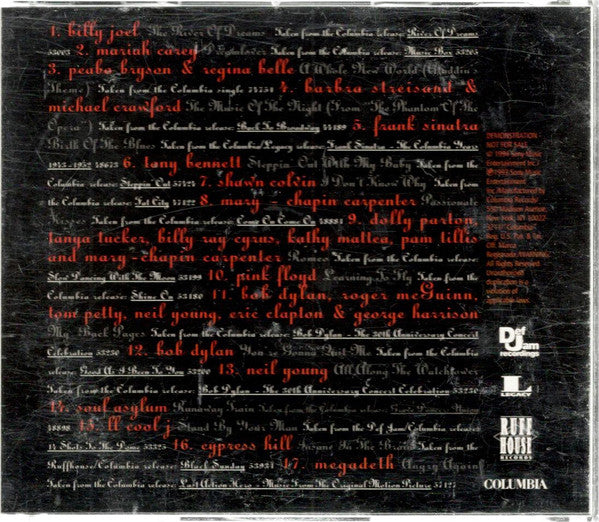 1. billy joel The River Of Dreams Taken from the Columbia release: River Of Dreams
53003 2. mariah carey Dreamlover Taken from the Columbia release: Music Box 53205
3. peabo bryson & regina belle A Whole New World (Aladdin's
Theme) Taken from the Columbia single 74751 4. barbra streisand &
michael crawford The Music Of The Night (From "The Phantom Of The
Opera") Taken from the Columbia release: Back To Broadway 44189 5. frank sinatra
Birth Of The Blues Taken from the Columbia/Legacy release: Frank Sinatra - The Columbia Years
1943-1952 48673 6. tony bennett Steppin' Out With My Baby Taken from the
Columbia release: Steppin' Out 57424 7. shawn colvin I Don't Know Why Taken from the
Columbia release: Fat City 47122 8. mary - chapin carpenter Passionate
Kisses Taken from the Columbia release: Come On Come On 48881 9. dolly parton,
tanya tucker, billy ray cyrus, kathy mattea, pam tillis
and mary-chapin carpenter Romeo Taken from the Columbia release:
Slow Dancing With The Moon 53199 10. pink floyd Learning To Fly Taken from the
Columbia release: Shine On 53180 11. bob dylan, roger mcGuinn,
tom petty, neil young, eric clapton & george harrison
My Back Pages Taken from the Columbia release: Bob Dylan - The 30th Anniversary Concert
Celebration 53230 12. bob dylan You're Gonna Quit Me Taken from the Columbia
release: Good As I Been To You 53200 13. neil young All Along The Watchtower
Taken from the Columbia release: Bob Dylan - The 30th Anniversary Concert Celebration 53230
14. soul asylum Runaway Train Taken from the Columbia release: Grave Dancers Union
48898 15. ll cool j Stand By Your Man Taken from the Def Jam/Columbia release:
14 Shots To The Dome 53325 16. cypress hill Insane In The Brain Taken from the
Ruffhouse/Columbia release: Black Sunday 53931 17. megadeth Angry Again
Taken from the Columbia release: Last Action Hero - Music From The Original Motion Picture 57127
DEMONSTRATION
NOT FOR SALE
Def Jam
recordings
L
LEGACY
RUFF
HOUSE
RECORDS
COLUMBIA